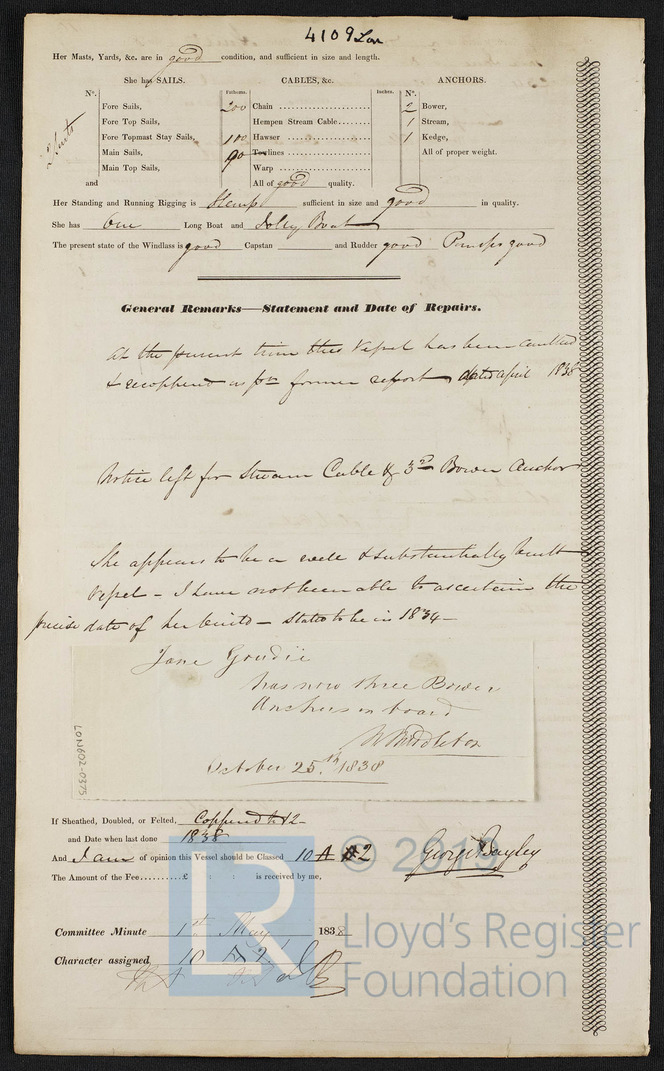 4109 Lon
Her Masts, Yards, &c. are in good condition, and sufficient in size and length.
She has SAILS. CABLES, &c. ANCHORS.
N°. Fathoms. Inches. N°.
Fore Sails, 200 Chain 2 Bower,
Fore Top Sails, Hempen Stream Cable 1 Stream,
2 Suits Fore Topmast Stay Sails, 100 Hawser 1 Kedge,
Main Sails, 90 Towlines All of proper weight.
Main Top Sails, Warp
and All of good quality.
Her Standing and Running Rigging is Hemp sufficient in size and good in quality.
She has One Long Boat and Jolly Boat
The present state of the Windlass is good Capstan and Rudder good Pumps good
General Remarks—Statement and Date of Repairs.
At the present time this Vessel has been caulked
& recoppered as per former report dated April 1838
Notice left for Stream Cable & 3rd Bower Anchor
She appears to be a well & substantially built
Vessel - I have not been able to ascertain the
precise date of her build - stated to be in 1834 -
Jane Goudie
has now three Bower
Anchors on board
W Middleton
October 25th 1838
LON602-0375
If Sheathed, Doubled, or Felted, Coppered
and Date when last done 1838
And I am of opinion this Vessel should be Classed 10 A 2
The Amount of the Fee..........£ : : is received by me,
George Bayley
Committee Minute 1st May 1838
Character assigned 10 A 1
© 2019
LR
Lloyd's Register
Foundation